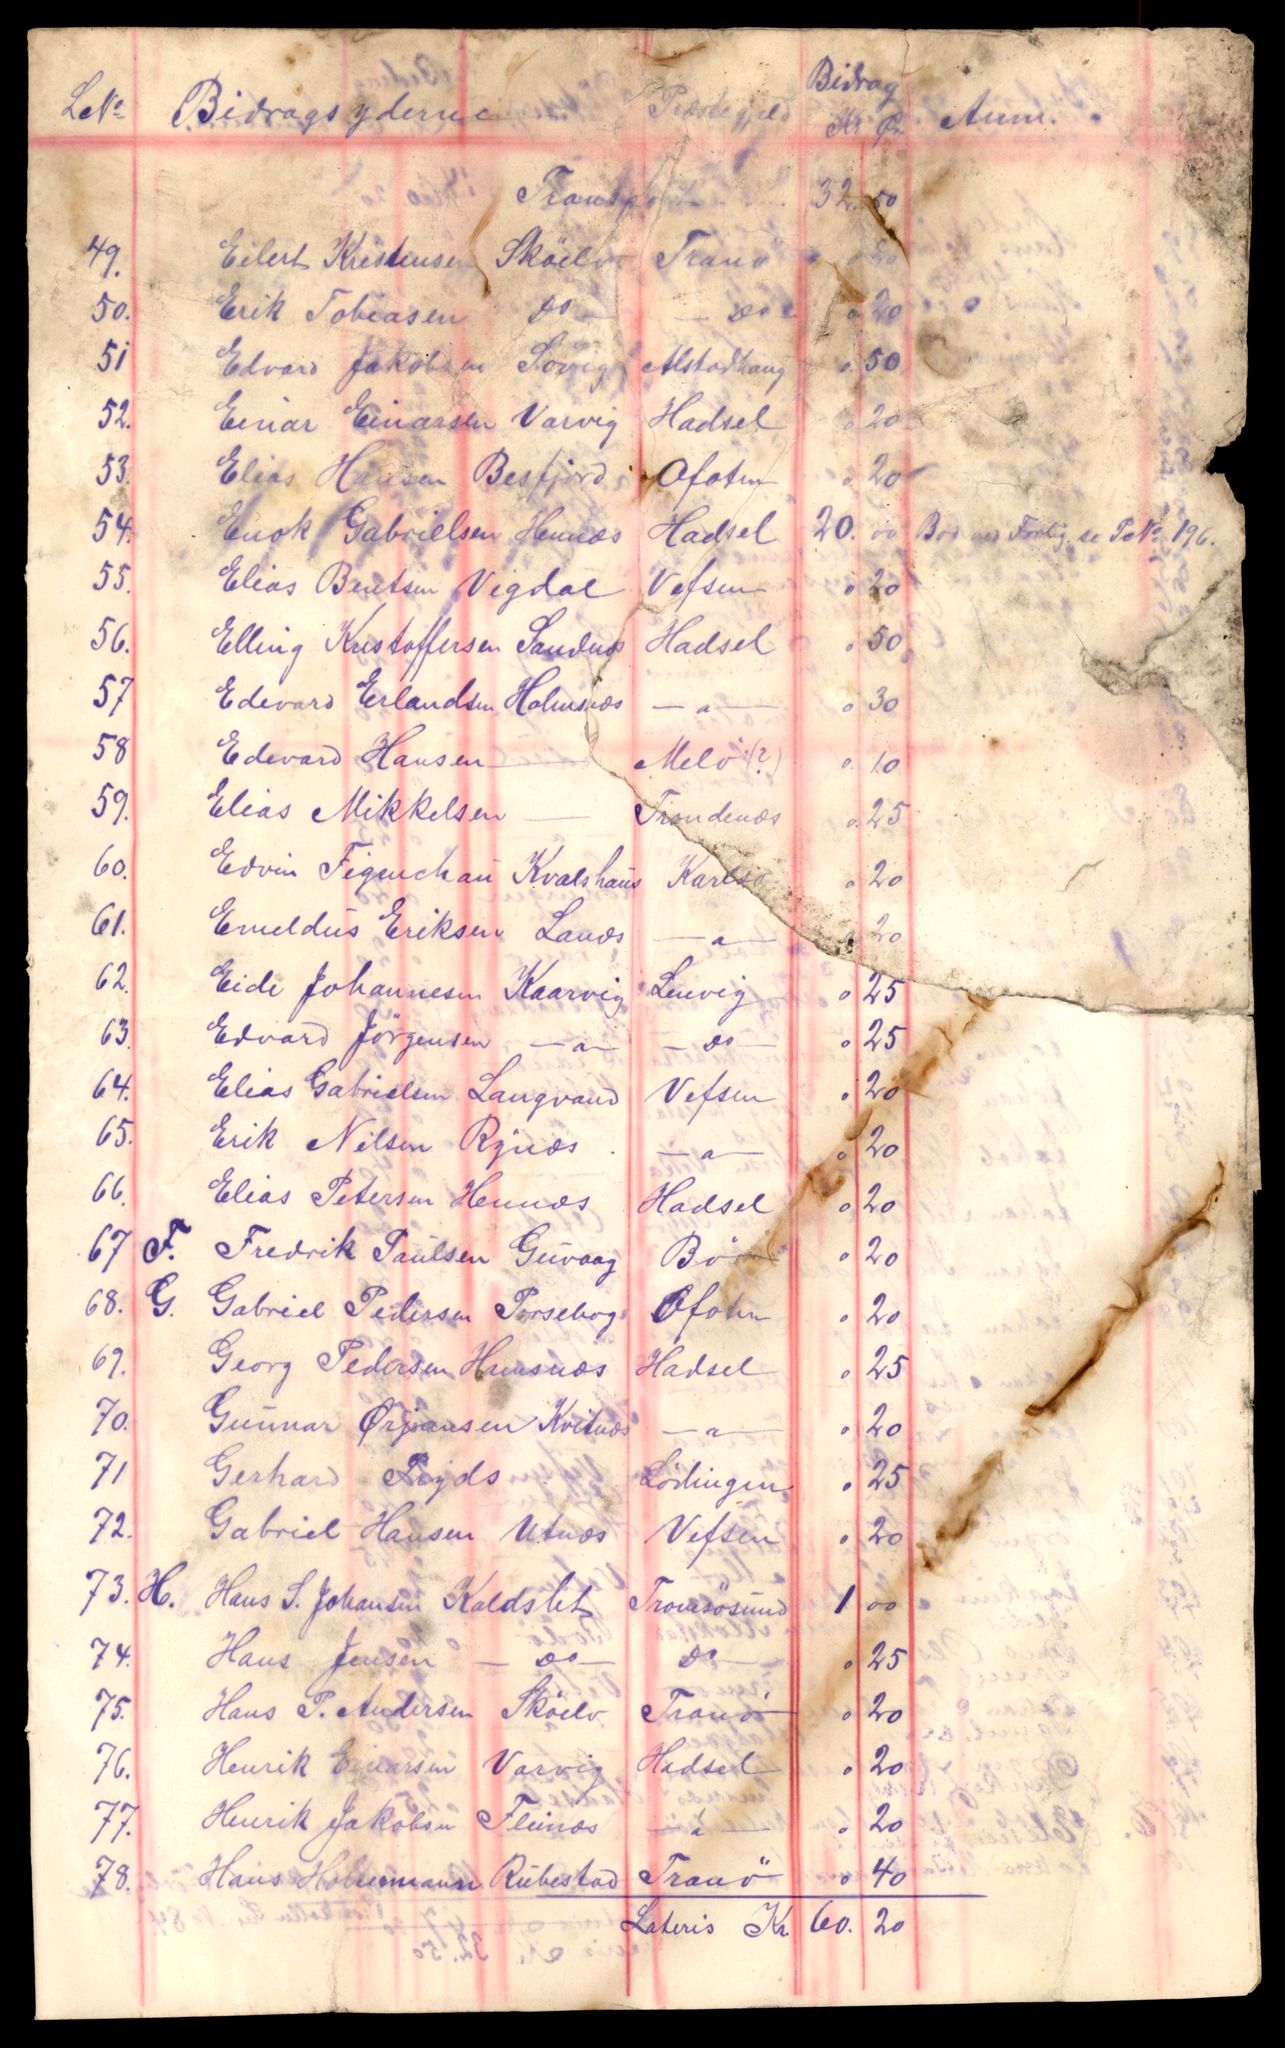 LNo Bidragsyderne Præstegjeld Bidrag Kr Ør Anm.
Transport 32. 50
49. Eilert Kristensen Sköelv Tranö " 20
50. Erik Tobiasen Do Do " 20
51 Edvard Jakobsen Sövig Alstadhaug " 50
52. Einar Einarsen Varvig Hadsel " 20
53. Elias Hansen Besfjord Ofoten " 20
54. Enok Gabrielsen Hennæs Hadsel 20. 00 Bod ved Forlig. se No 196.
55. Elias Bentsen Vigdal Vefsen " 20
56. Elling Kristoffersen Sandnæs Hadsel " 50
57 Edevard Erlandsen Holmsnæs — " — " 30
58 Edevard Hansen — Melö (?) " 10
59. Elias Mikkelsen — Trondenæs " 25
60. Edvin Figenchau Kvalshaus Karlsö " 20
61. Emeldus Eriksen Lanæs — " — " 20
62. Eide Johannesen Kaarvig Lenvig " 25
63. Edvard Jörgensen — " — Do " 25
64. Elias Gabrielsen Langvand Vefsen " 20
65. Erik Nilsen Rynæs — " — " 20
66. Elias Petersen Hennæs Hadsel " 20
67 F. Fredrik Paulsen Guvaag Bö " 20
68. G. Gabriel Pedersen Porsebog Ofoten " 20
69. Georg Pedersen Hamsnæs Hadsel " 25
70. Gunnar Ørjansen Kvitnæs — " — " 20
71 Gerhard Lödingen " 25
72. Gabriel Hansen Utnæs Vefsen " 20
73. H. Hans S. Johansen Kaldslet Tromsösund 1 00
74. Hans Jensen — Do — Do — " 25
75. Hans P. Andersen Sköelv Tranö " 20
76. Henrik Einarsen Varvig Hadsel " 20
77. Henrik Jakobsen Fleinæs — " — " 20
78. Hans Holmemann Rubestad Tranö " 40
Lateris Kr. 60. 20